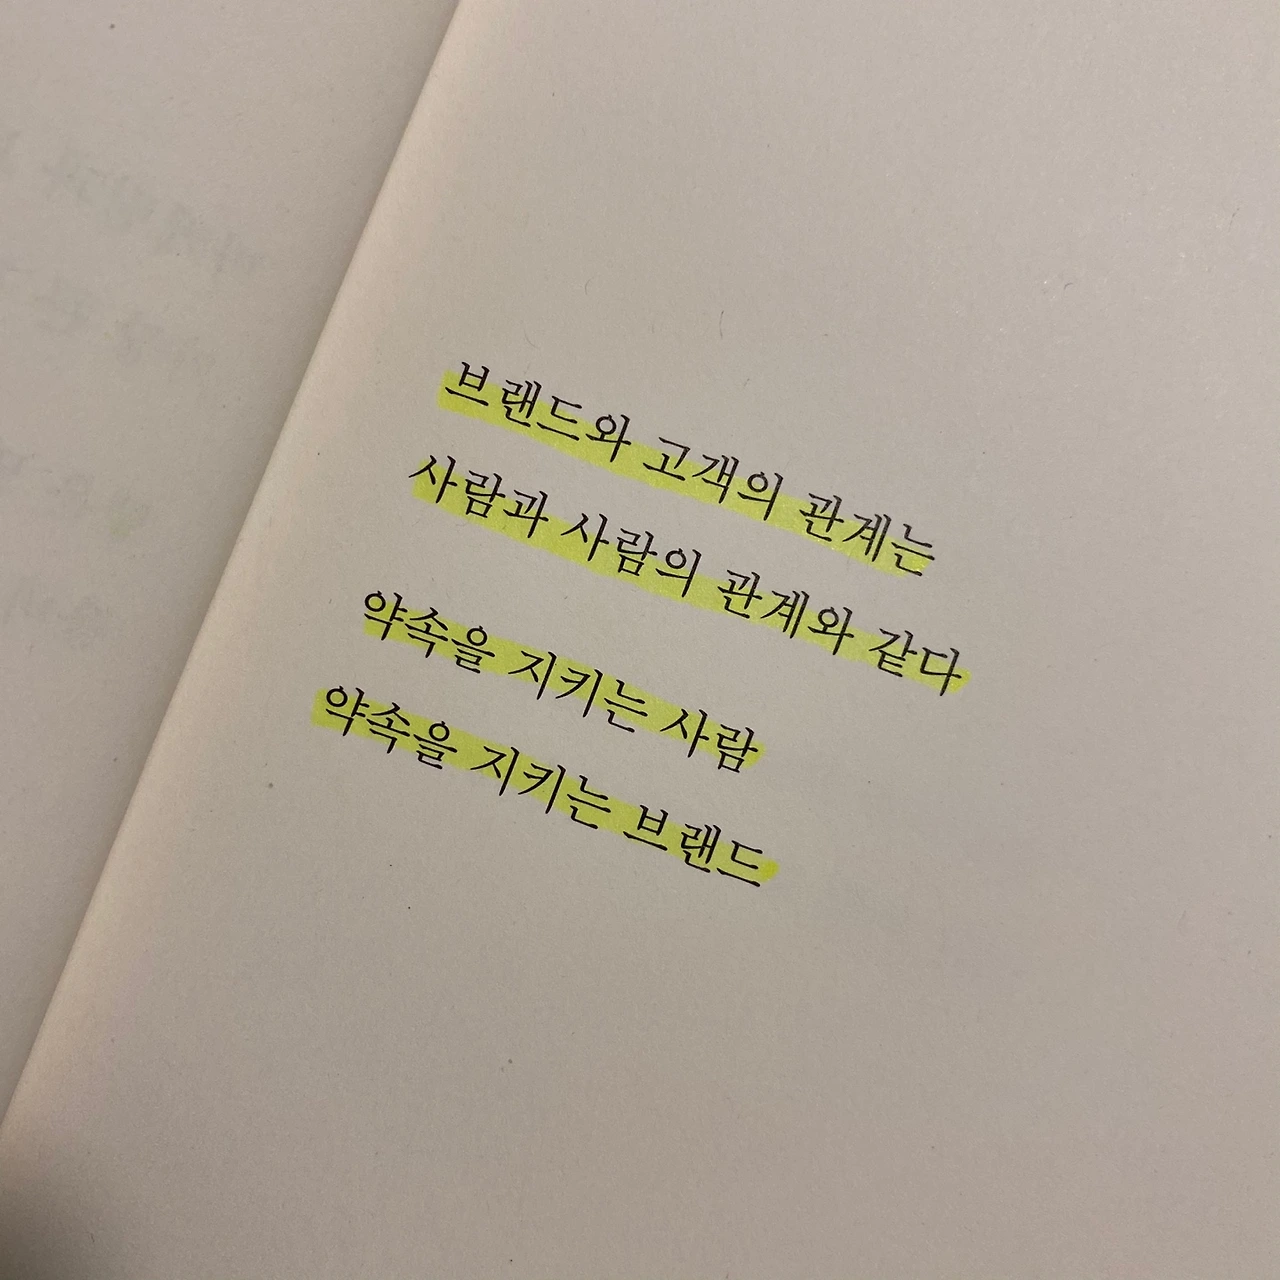 브랜드와 고객의 관계는
사람과 사람의 관계와 같다
약속을 지키는 사람
약속을 지키는 브랜드